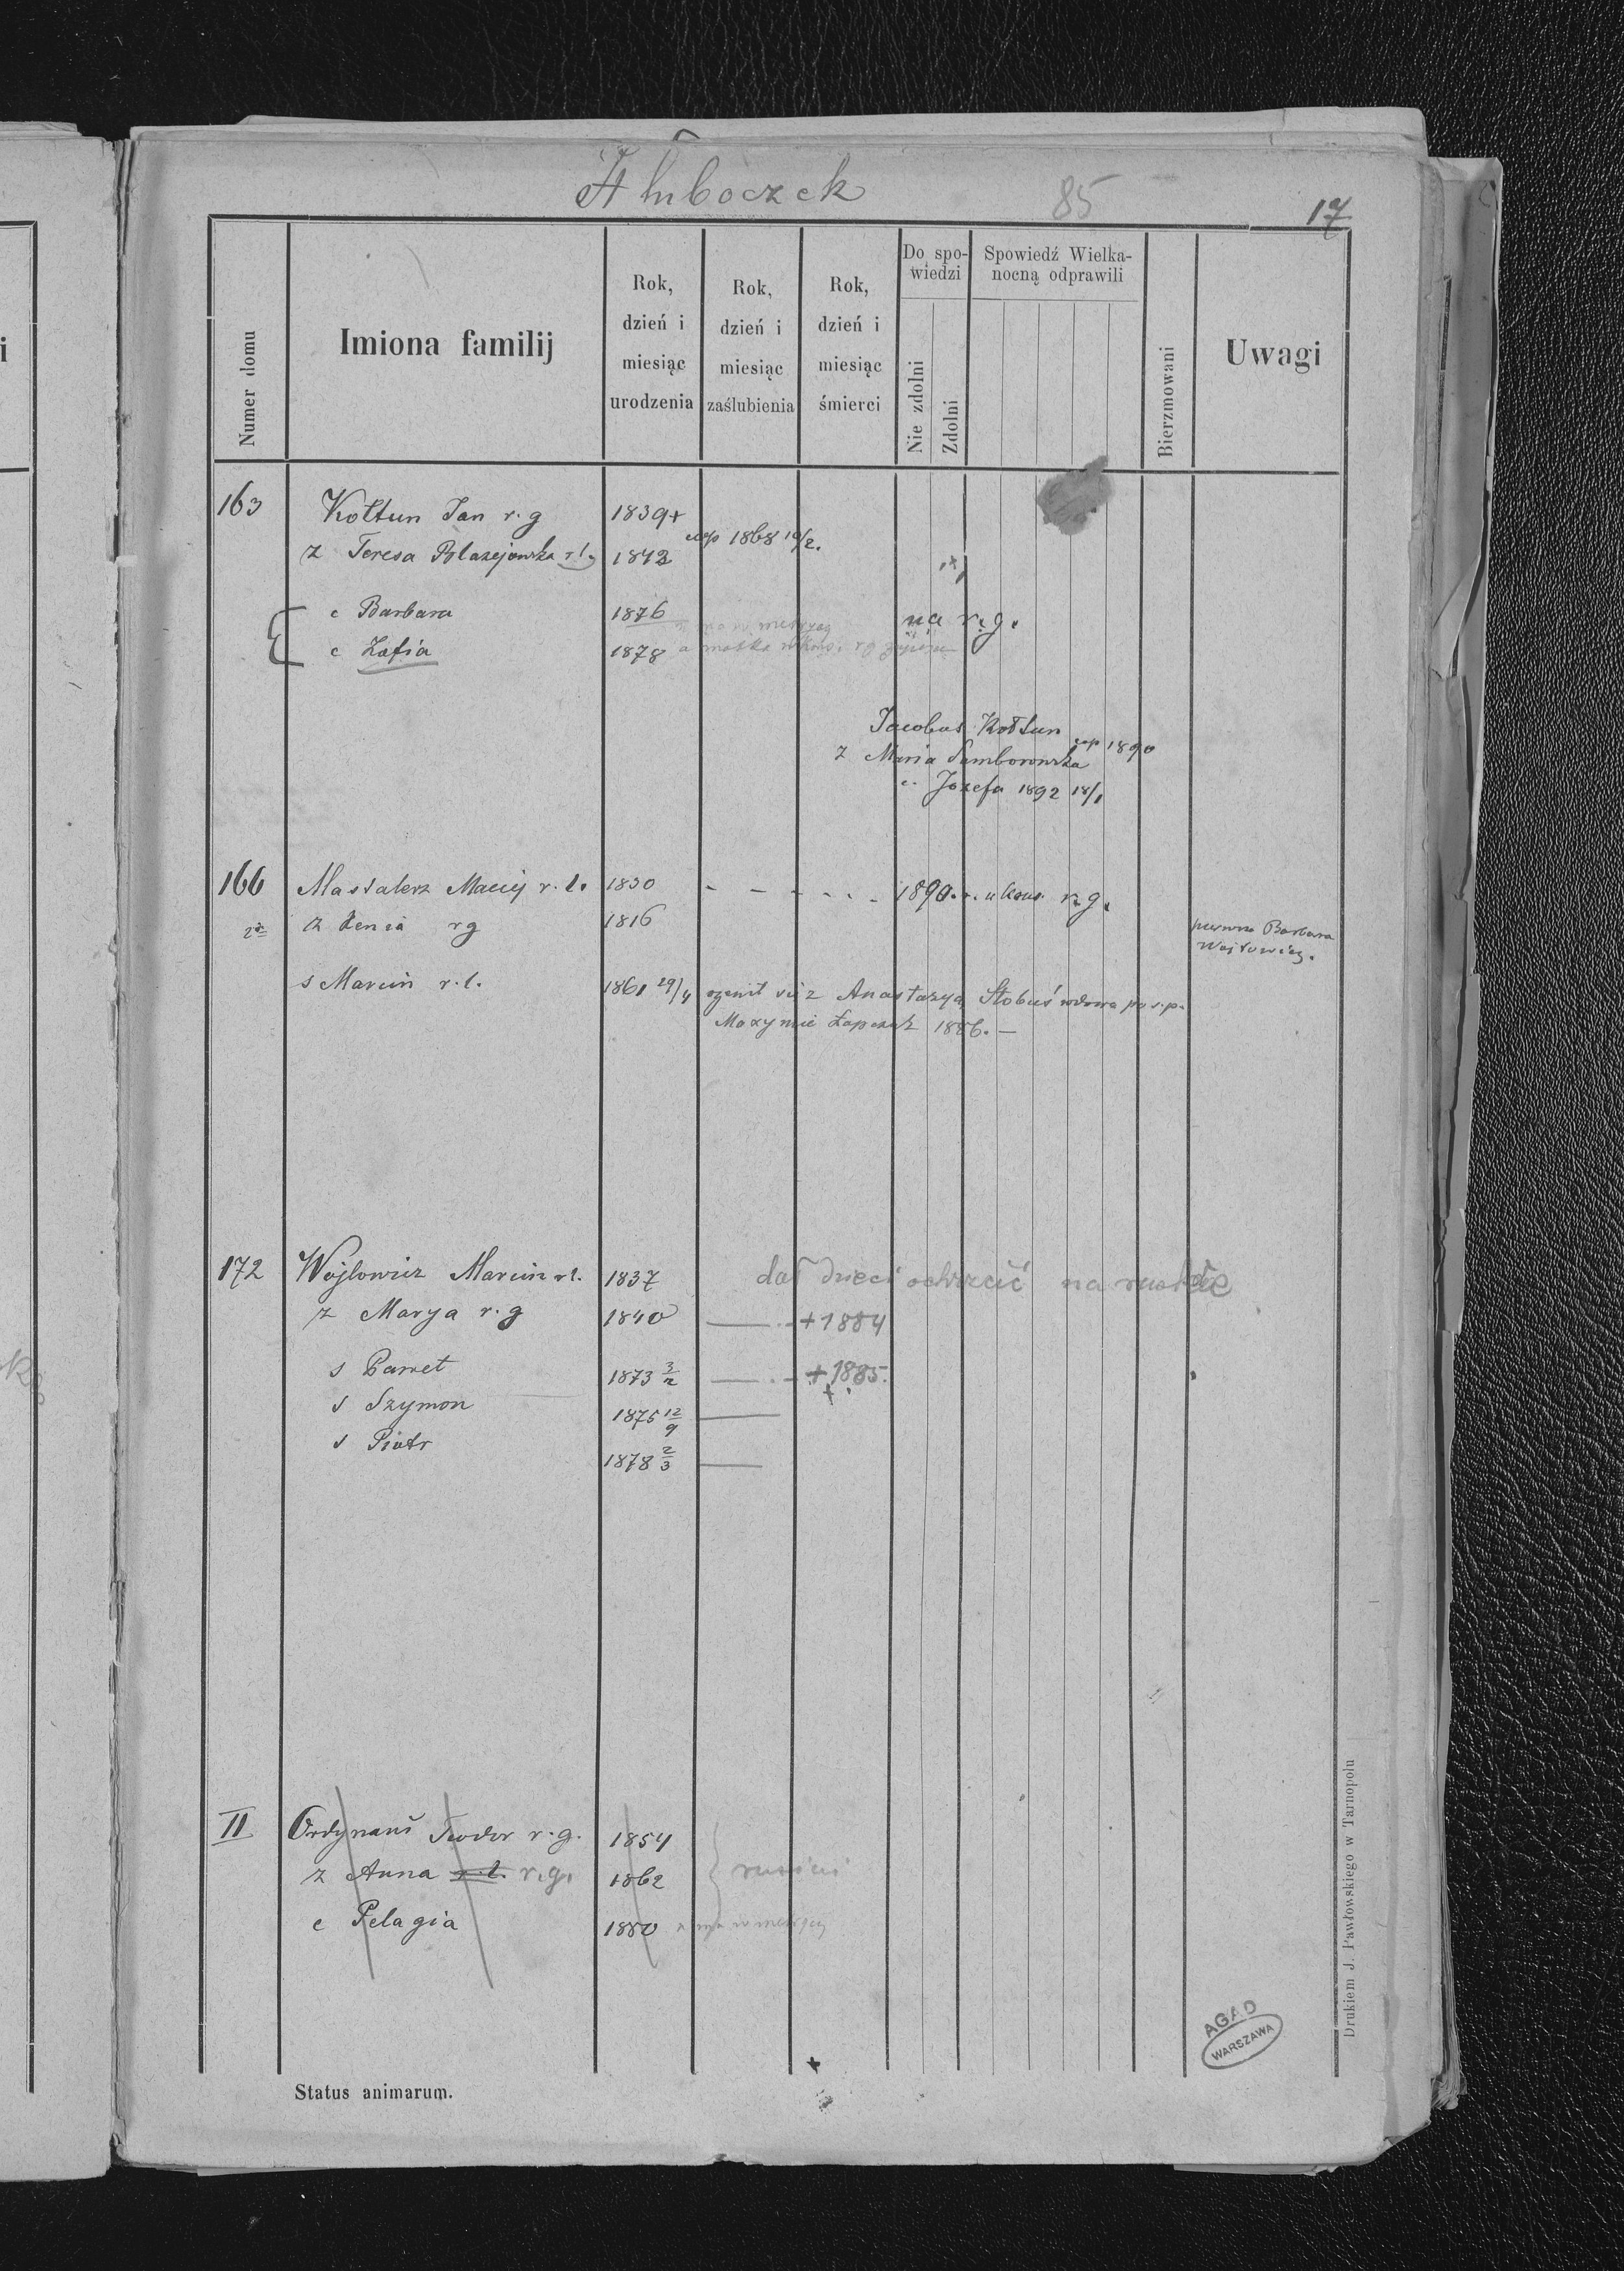 Hłuboczek
85
17
Numer domu
Imiona familij
Rok, dzień i miesiąc urodzenia
Rok, dzień i miesiąc zaślubienia
Rok, dzień i miesiąc śmierci
Do spo-
wiedzi
Nie zdolni
Zdolni
Spowiedź Wielka-
nocną odprawili
Bierzmowani
Uwagi
163 Kołtun Jan r. g 1839+
cop 1868 10/2.
z Teresa Błazejowska r. l. 1843
c Barbara 1876
na r. g.
c Zofia 1878 a matka
Jacobus Kołtun
cop 1890
z Maria Samborowska
c. Jozefa 1892 18/1
166 Mastalerz Maciej r. l. 1830 - - - - - - 1890. r. g.
z Xenia rg 1816
pierwsza Barbara
Wojtowicz.
s Marcin r. l. 1861 29/4 ozenił się z Anastazyą Słobuś wdowa po s. p.
Maxymie Łapczuk 1886. —
172 Wojtowicz Marcin r l. 1837 dał dzieci ochrzcić na ruskie
z Marya r. g 1840 +1884
s Paweł 1873 3/2 +1885.
s Szymon 1875 12/9
s Piotr 1878 2/3
II Ordynans Teodor r. g. 1854
z Anna r. l. r. g. 1862
c Pelagia 1880
Drukiem J. Pawłowskiego w Tarnopolu
AGAD
WARSZAWA
Status animarum.